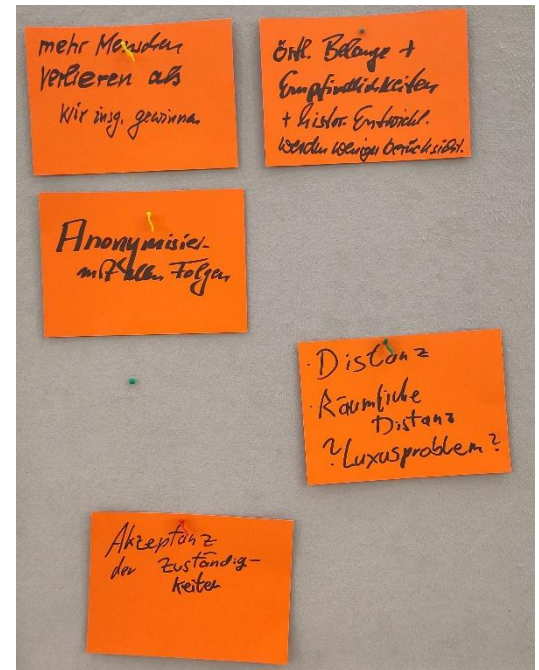 mehr Menschen
verlieren als
wir insg. gewinnen
örtl. Belange +
Empfindlichkeiten
+ histor. Entwickl.
werden weniger berücksicht.
Anonymisier-
mit allen Folgen
· Distanz
· Räumliche
Distanz
? Luxusproblem ?
Akzeptanz
der Zuständig-
keiten